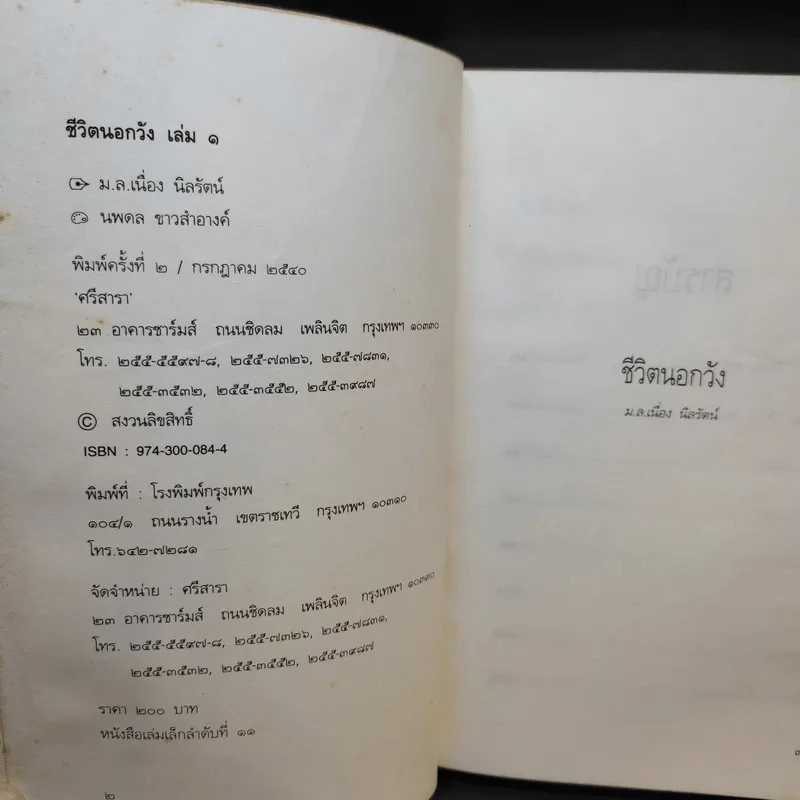 ชีวิตนอกวัง เล่ม ๑
ม.ล.เนื่อง นิลรัตน์
นพดล ขาวสำอางค์
พิมพ์ครั้งที่ ๒ / กรกฎาคม ๒๕๔๐
'ศรีสารา'
๒๓ อาคารชาร์มส์ ถนนชิดลม เพลินจิต กรุงเทพฯ ๑๐๓๓๐
โทร. ๒๕๕-๕๕๙๗-๘, ๒๕๕-๗๓๒๖, ๒๕๕-๗๘๓๑,
๒๕๕-๓๕๓๒, ๒๕๕-๓๕๕๒, ๒๕๕-๓๙๘๗
© สงวนลิขสิทธิ์
ISBN : 974-300-084-4
พิมพ์ที่ : โรงพิมพ์กรุงเทพ
๑๐๔/๑ ถนนรางน้ำ เขตราชเทวี กรุงเทพฯ ๑๐๓๑๐
โทร.๖๔๒-๗๒๘๑
จัดจำหน่าย : ศรีสารา
๒๓ อาคารชาร์มส์ ถนนชิดลม เพลินจิต กรุงเทพฯ ๑๐๓๓๐
โทร. ๒๕๕-๕๕๙๗-๘, ๒๕๕-๗๓๒๖, ๒๕๕-๗๘๓๑,
๒๕๕-๓๕๓๒, ๒๕๕-๓๕๕๒, ๒๕๕-๓๙๘๗
ราคา ๒๐๐ บาท
หนังสือเล่มเล็กลำดับที่ ๑๑
๒
ชีวิตนอกวัง
ม.ล.เนื่อง นิลรัตน์